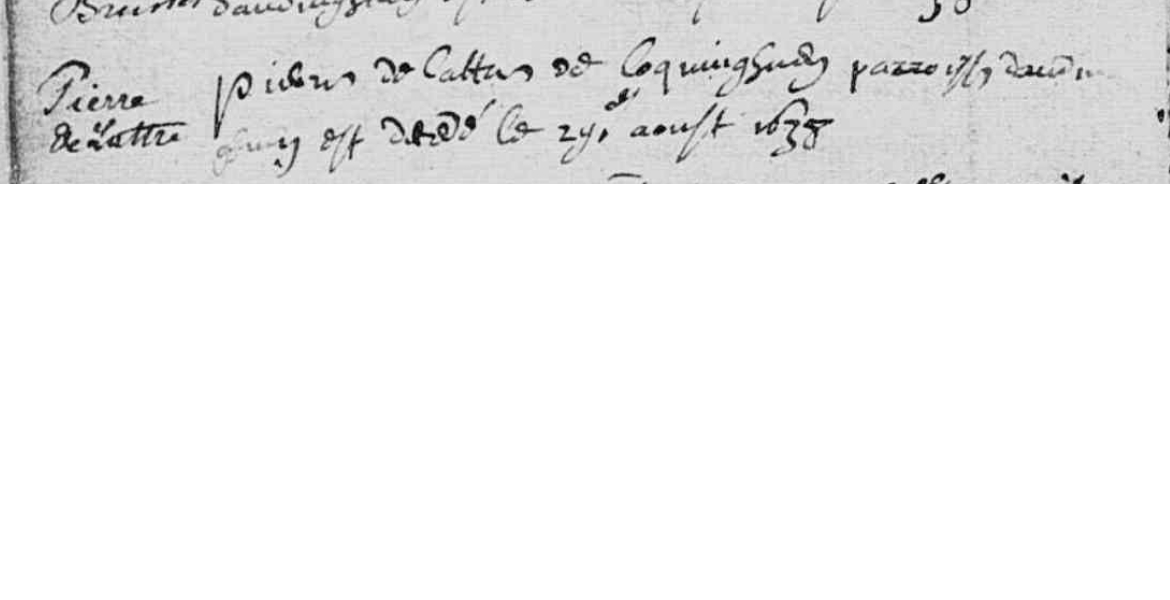 Pierre
de Lattre
pierre de lattre de Coquinghuen parroisse daudin
ghuen est decedé le 29e aoust 1638